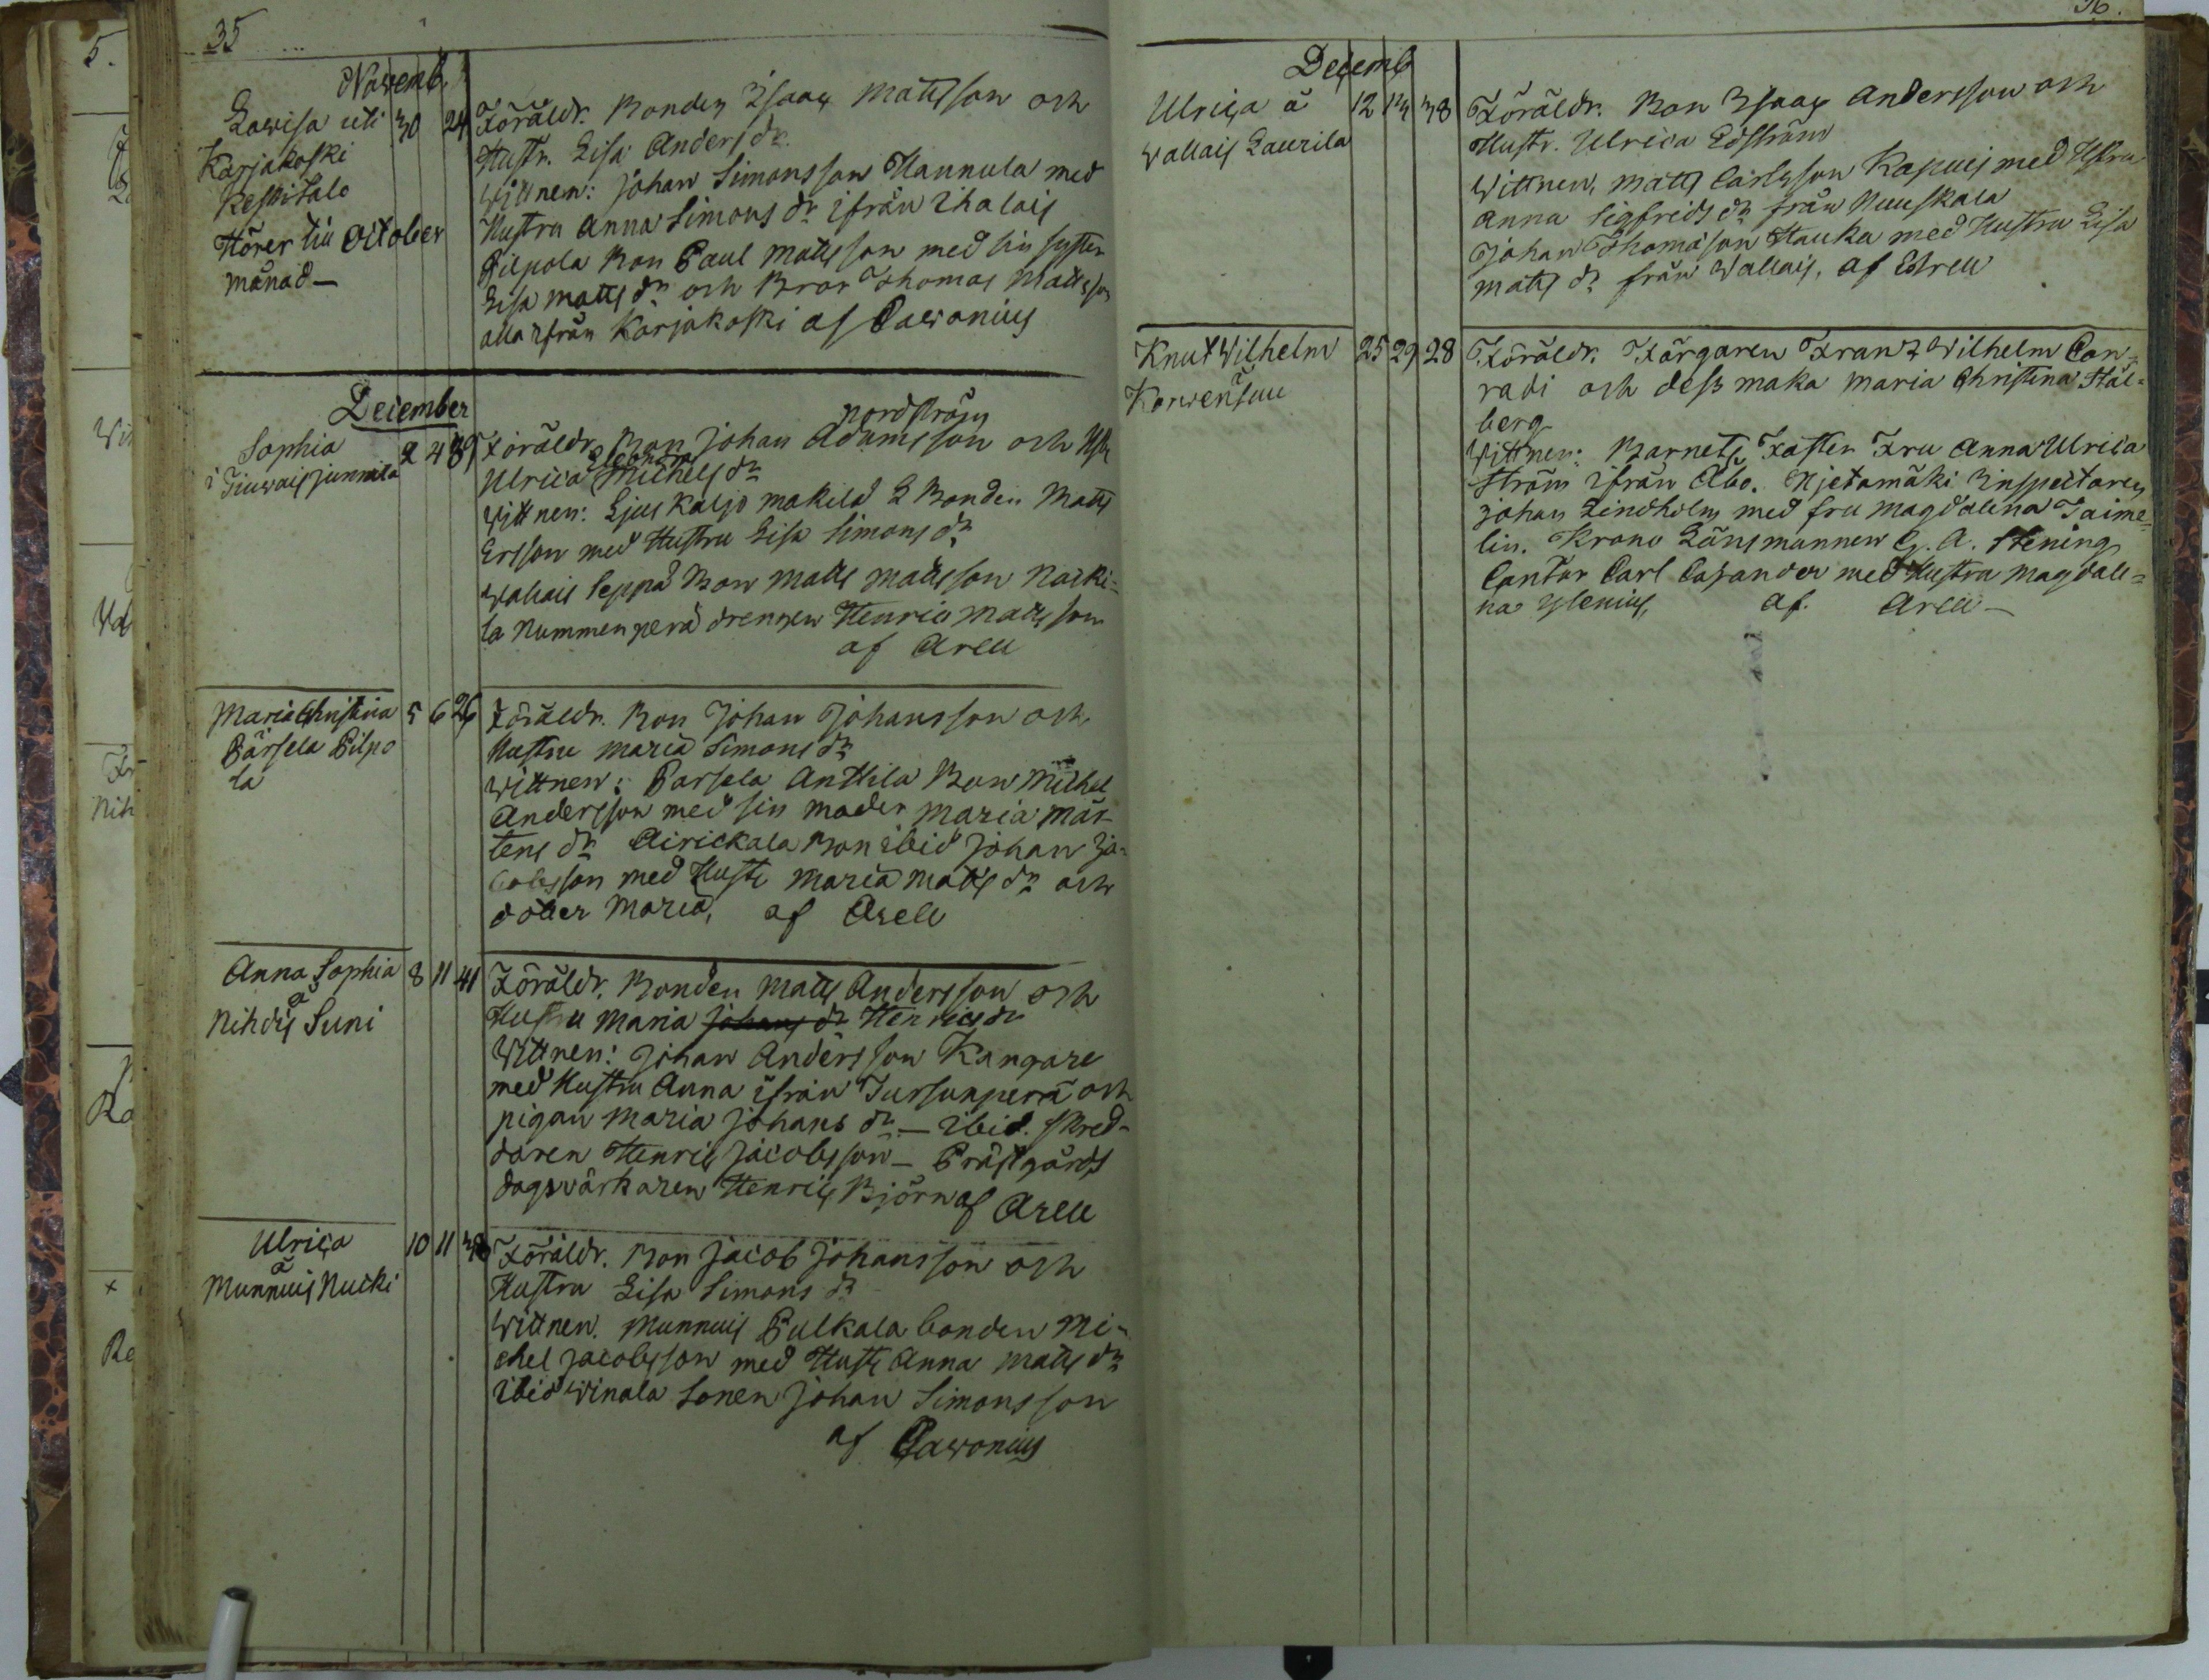 35
Novemb.
Lovisa uti 30 24
Karjakoski
Keskitalo
Hörer till October
månad —
Föräldr. Bonden Isaac Mattsson och
Hustr. Lisa Anders dr.
Wittnen: Johan Simonsson Hannula med
Hustru Anna Simons dr ifrån Ihalais
Pilpola Bon Paul Mattsson med sin syster
Lisa Matts dr och Bror Thomas Mattsson
alla ifrån Karjakoski af Pawonius
December
Sophia 2 4 39
i Tiuvais Junnila
Nordström
Föräldr. Bon Johan Adamsson och Hstr
Ulrica Michels dr
Wittnen: Ljus Kaljo Makila Bonden Matts
Ersson med Hustru Lisa Simons dr
Wallais Seppä Bon Matts Mattsson Naiki-
la Nummenperä drengen Henric Mattsson
af Arell
Maria Christina 5 6 26
Pärsela Pilpo
la
Föräldr. Bon Johan Johansson och
Hustru Maria Simons dr
Wittnen: Parsela Anttila Bon Michel
Andersson med sin moder Maria Mår-
tens dr Airickala Bon ibid Johan Ja-
cobsson med Hustr Maria Matts dr och
dotter Maria, af Arell
Anna Sophia 8 11 41
å
Nihdis Suni
Föräldr. Bonden Matts Andersson och
Hustru Maria Johans dr Henrics dr
Wittnen: Johan Andersson Kangare
med Hustru Anna ifrån Tursunperä och
pigan Maria Johans dr — ibid. Skred-
daren Henric Jacobsson — Prästgårds
dagsvärkaren Henric Björn af Arell
Ulrica 10 11 38
å
Munnuis Nucki
Föräldr. Bon Jacob Johansson och
Hustru Lisa Simons dr
Wittnen. Munnuis Pulkala bonden Mi-
chel Jacobsson med Hustr Anna Matts dr
ibid Winala Sonen Johan Simonsson
af Pawonius
36.
Decemb
Ulrica å 12 14 38
Wallais Laurila
Föräldr. Bon Isaac Andersson och
Hustr. Ulrica Edström
Wittnen, Matts Carlsson Kapuis med Hstru
Anna Sigfrids dr från Nuuskala
Johan Thomasson Hauka med Hustru Lisa
Matts dr från Wallais, af Ehrell
Knut Wilhelm 25 29 28
å
Korvensuu
Föräldr. Färgaren Frans Wilhelm Con-
radi och dess maka Maria Christina Stål-
berg
Wittnen: Barnets Faster Fru Anna Ulrica
Ström ifrån Åbo. Njetamäki Inspectoren
Johan Lindholm med fru Magdalena Taime-
lin. Krono Länsmannen G. A. Stening
Cantor Carl Cajander med Hustru Magdale-
na Ylenius, af. Arell —